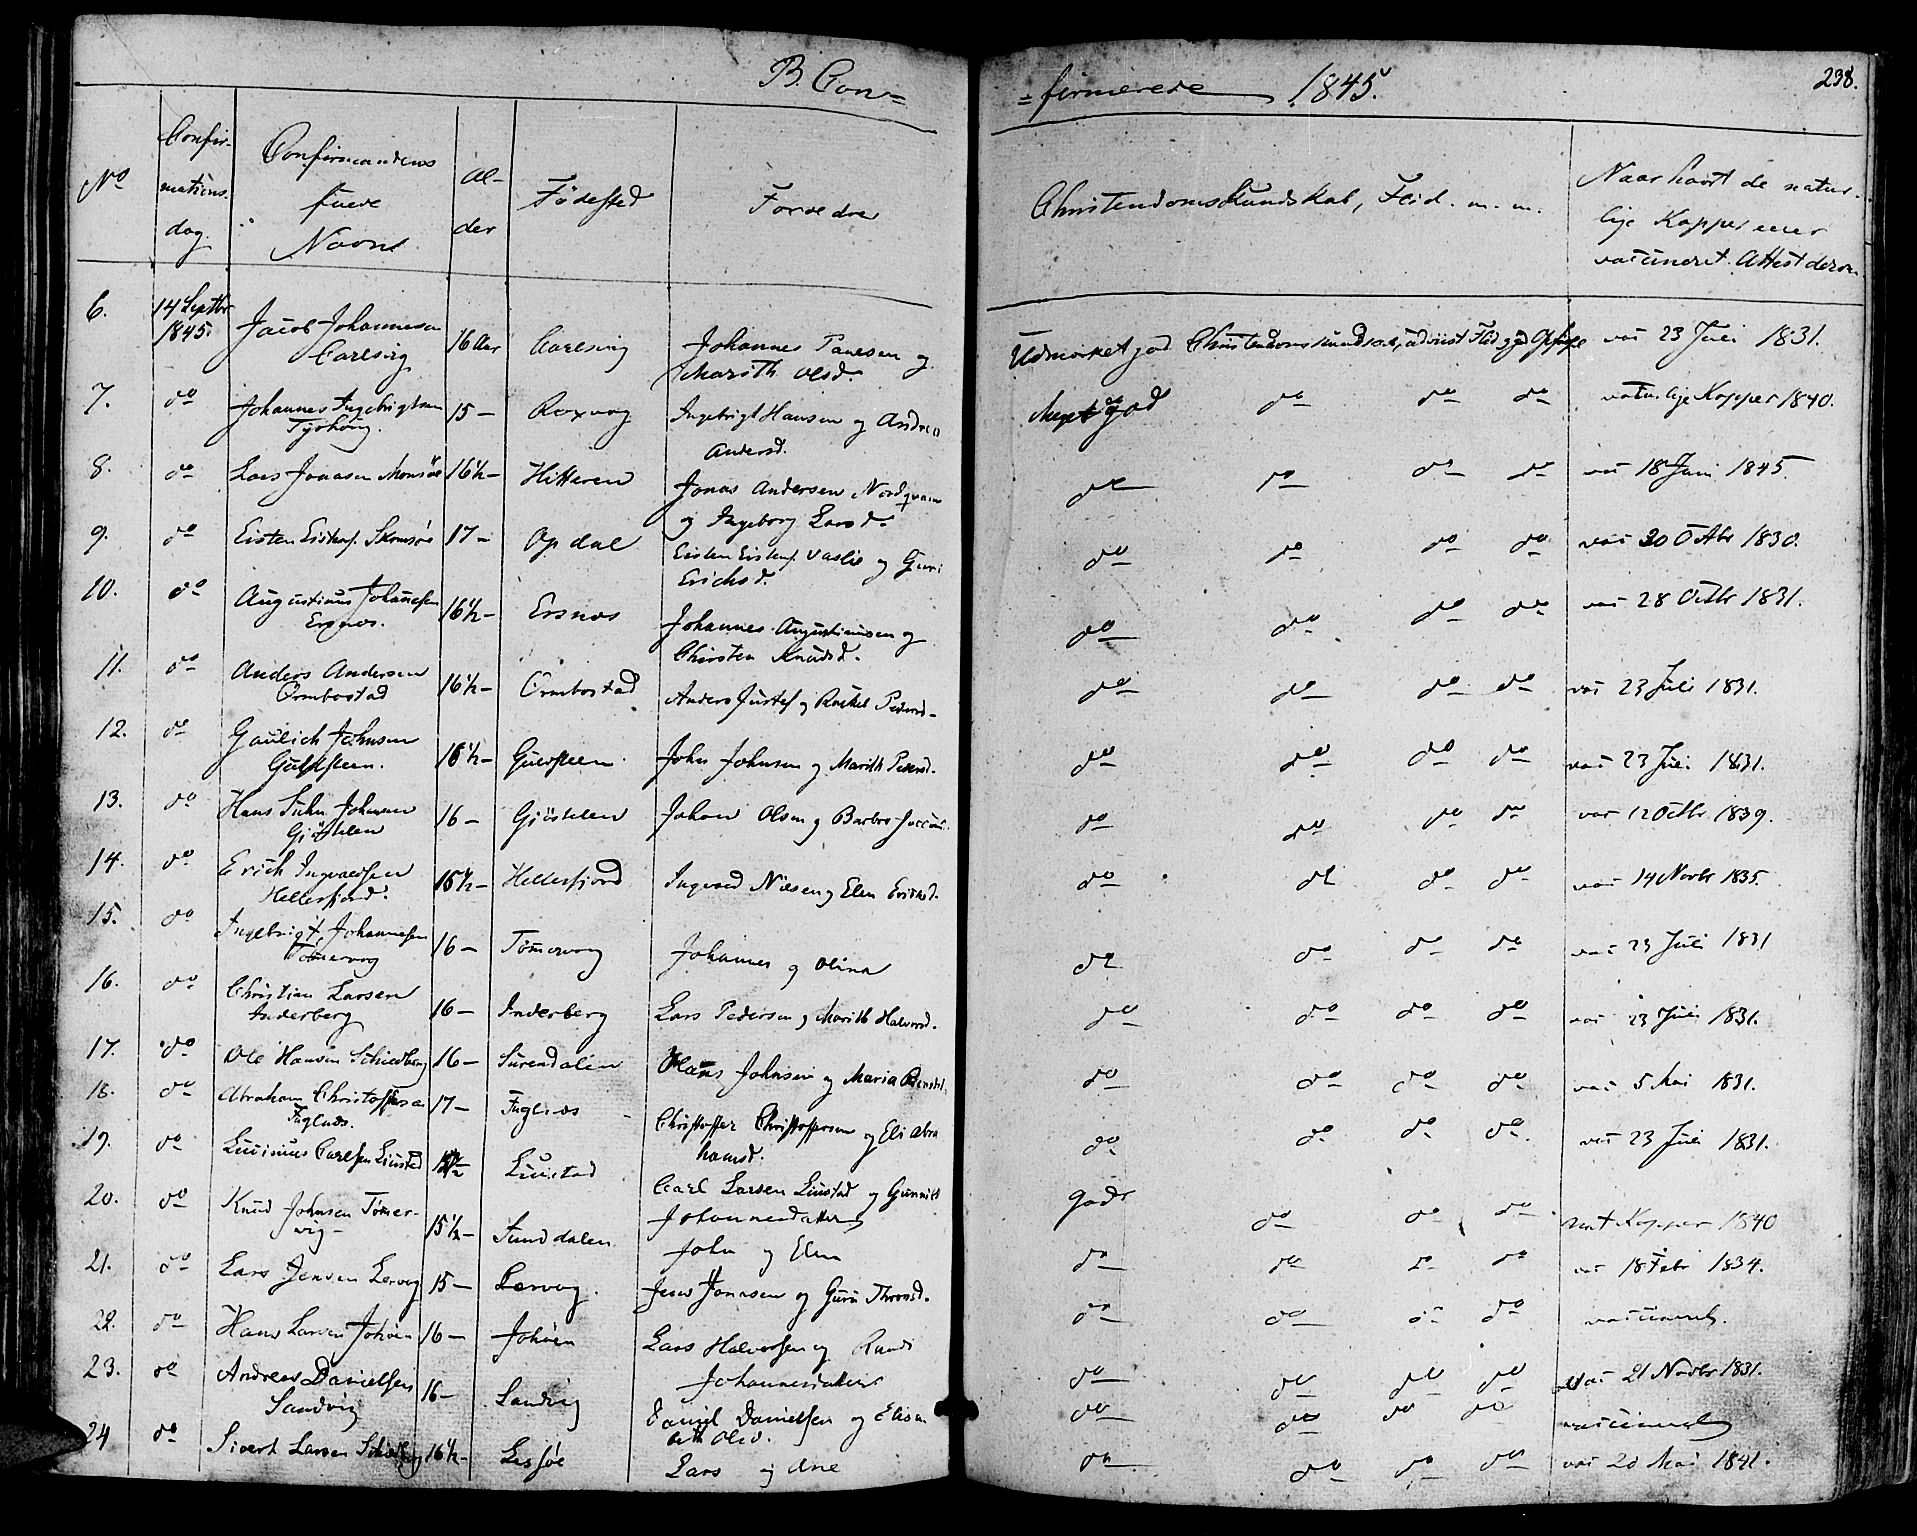 B. Con=
=firmerede 1845.
238.
No
Confir-
mations-
dag.
Confirmandens
fulde
Navne
Al-
der
Födested
Forældre
Christendomskundskab, Flid. m. m.
Naar havt de natur-
lige Kopper eller
vaccineret. Attest derom
6. 14 Septbr 1845. Jacob Johannesen Carlsvig 16 Aar Carlsvig Johannes Paulsen og Marith Olsd. Udmærket god Christendomskundskab, udviist Flid og god Opførs. vac 23 Juli 1831.
7. do Johannes Ingebrigtsen 15 – Roxvog Ingebrigt Hansen og Andrea Andersd. Meget god do do do naturlige Kopper 1840.
8. do Lars Jonasen Monsöe 16½ – Hitteren Jonas Andersen Nordqvam og Ingeborg Larsd. do do do do vac 18 Juni 1845.
9. do Eisten Eistens. Skomsöe 17 – Opdal Eisten Eistens. Vaslie og Guri Erichsd. do do do do vac 20 Octbr 1830.
10. do Augustinus Johannesen Ersnæs. 16½ – Ersnæs Johannes Augustinusen og Chirsten Knudsd. do do do do vac 28 Octbr 1831.
11. do Anders Andersen Ormbostad 16½ – Ormbostad Anders Justef og Rachel Pedersd. do do do do vac 23 Juli 1831.
12. do Gaulich Johnsen Guldsteen. 16½ – Guldsteen. John Johnsen og Marith Pedersd. do do do do vac 23 Juli 1831.
13. do Hans Suhn Johansen Gjöstelen 16 – Gjöstelen Johan Olsen og Barbro do do do do vac 12 Octbr 1839.
14. do Erich Ingvaldsen Hellesfjord. 15½ – Hellesfjord Ingvald Nilsen og Elen Erichsd. do do do do vac 14 Novbr 1835.
15. do Ingebrigt Johannesen Tömervog 16 – Tömervog Johannes og Olina do do do do vac 23 Juli 1831
16. do Christian Larsen Inderberg 16 – Inderberg Lars Pedersen og Marith Halvorsd. do do do do vac 23 Juli 1831.
17. do Ole Hansen Schiedberg 16 – Surendalen Hans Johnsen og Maria do do do do vac 5 Mai 1831.
18. do Abraham Christoffersen Fuglnæs. 17 – Fuglnæs Christoffer Christoffersen og Eli Abrahamsd. do do do do vac 23 Juli 1831.
19. do Lauvinus Carlsen Liustad Liustad Carl Larsen Liustad og Gunnild Johannesdatter godt do do do nat Kopper 1840
20. do Knud Johnsen Tömervig – 15½ – Sunddalen John og Elen do do do do vac 18 Febr 1834.
21. do Lars Jensen Lervog 15 – Lervog. Jens Jonasen og Guru Thronds. do do do do vaccineret.
22. do Hans Larsen Johöen 16 – Johöen Lars Halvorsen og Randi Johannesdatter do do do do vac 21 Novbr 1831.
23. do Andreas Danielsen Sandvig 16 – Sandvig Daniel Danielsen og Elisabeth Olsd. do do do do vaccineret
24 do Sivert Larsen 16½ – Lesjöe Lars og Ane do do do do vac 20 Mai 1841.